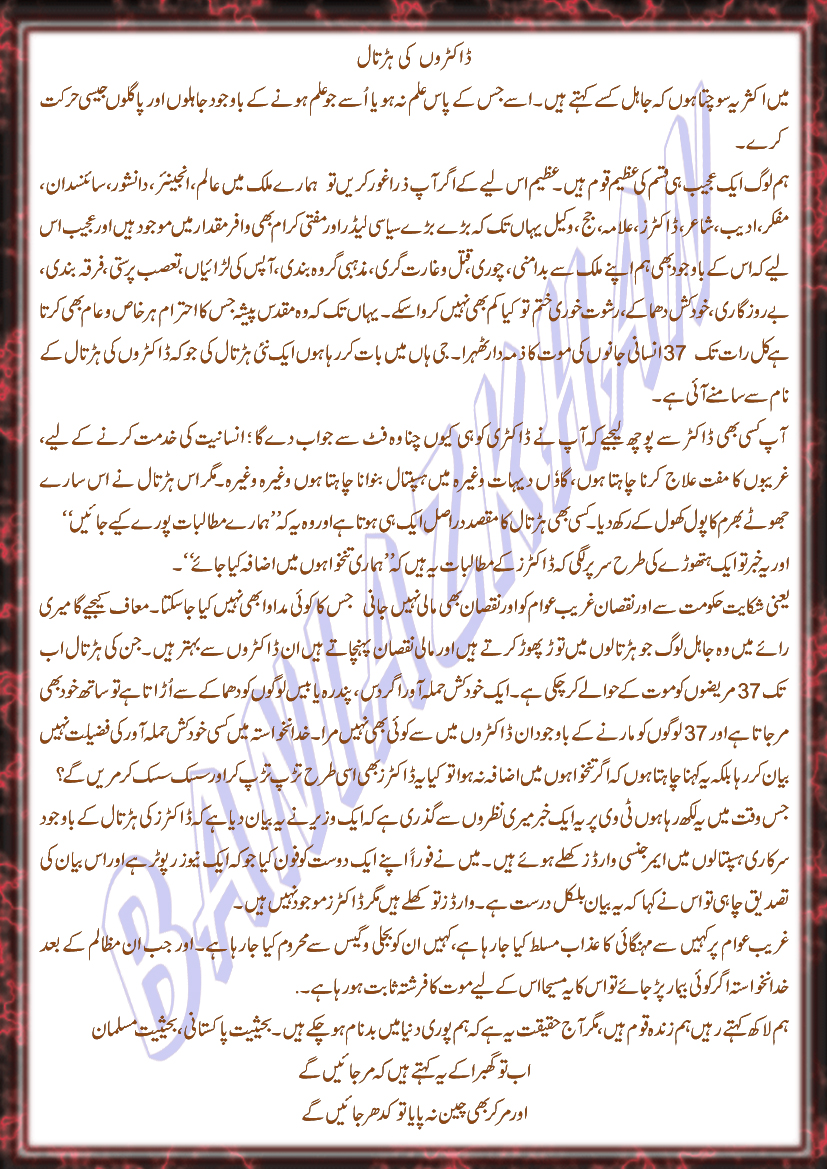 ڈاکٹروں کی ہڑتال
میں اکثر یہ سوچتا ہوں کہ جاہل کسے کہتے ہیں۔ اسے جس کے پاس علم نہ ہو یا اُسے جو علم ہونے کے باوجود جاہلوں اور پاگلوں جیسی حرکت
کرے۔
ہم لوگ ایک عجیب ہی قسم کی عظیم قوم ہیں۔ عظیم اس لیے کے اگر آپ ذرا غور کریں تو ہمارے ملک میں عالم، انجینئر، دانشور، سائنسدان،
مفکر، ادیب، شاعر، ڈاکٹرز، علامہ، جج، وکیل یہاں تک کہ بڑے بڑے سیاسی لیڈر اور مفتی کرام بھی وافر مقدار میں موجود ہیں اور عجیب اس
لیے کہ اس کے باوجود بھی ہم اپنے ملک سے بدامنی، چوری، قتل و غارت گری، مذہبی گروہ بندی، آپس کی لڑائیاں، تعصب پرستی، فرقہ بندی،
بے روزگاری، خودکش دھماکے، رشوت خوری ختم تو کیا کم بھی نہیں کرواسکے۔ یہاں تک کہ وہ مقدس پیشہ جس کا احترام ہر خاص و عام بھی کرتا
ہے کل رات تک 37 انسانی جانوں کی موت کا ذمہ دار ٹھہرا۔ جی ہاں میں بات کر رہا ہوں ایک نئی ہڑتال کی جو کہ ڈاکٹروں کی ہڑتال کے
نام سے سامنے آئی ہے۔
آپ کسی بھی ڈاکٹر سے پوچھ لیجیے کہ آپ نے ڈاکٹری کو ہی کیوں چنا وہ فٹ سے جواب دے گا؛ انسانیت کی خدمت کرنے کے لیے،
غریبوں کا مفت علاج کرنا چاہتا ہوں، گاؤں دیہات وغیرہ میں ہسپتال بنوانا چاہتا ہوں وغیرہ وغیرہ۔ مگر اس ہڑتال نے اس سارے
جھوٹے بھرم کا پول کھول کے رکھ دیا۔ کسی بھی ہڑتال کا مقصد دراصل ایک ہی ہوتا ہے اور وہ یہ کہ ’’ہمارے مطالبات پورے کیے جائیں‘‘
اور یہ خبر تو ایک ہتھوڑے کی طرح سر پر لگی کہ ڈاکٹرز کے مطالبات یہ ہیں کہ ’’ہماری تنخواہوں میں اضافہ کیا جائے‘‘۔
یعنی شکایت حکومت سے اور نقصان غریب عوام کو اور نقصان بھی مالی نہیں جانی جس کا کوئی مداوا بھی نہیں کیا جاسکتا۔ معاف کیجیے گا میری
رائے میں وہ جاہل لوگ جو ہڑتالوں میں توڑ پھوڑ کرتے ہیں اور مالی نقصان پہنچاتے ہیں ان ڈاکٹروں سے بہتر ہیں۔ جن کی ہڑتال اب
تک 37 مریضوں کو موت کے حوالے کر چکی ہے۔ ایک خودکش حملہ آور اگر دس، پندرہ یا بیس لوگوں کو دھماکے سے اُڑاتا ہے تو ساتھ خود بھی
مر جاتا ہے اور 37 لوگوں کو مارنے کے باوجود ان ڈاکٹروں میں سے کوئی بھی نہیں مرا۔ خدانخواستہ میں کسی خودکش حملہ آور کی فضیلت نہیں
بیان کر رہا بلکہ یہ کہنا چاہتا ہوں کہ اگر تنخواہوں میں اضافہ نہ ہوا تو کیا یہ ڈاکٹرز بھی اسی طرح تڑپ تڑپ کر اور سسک سسک کر مریں گے؟
جس وقت میں یہ لکھ رہا ہوں ٹی وی پر یہ ایک خبر میری نظروں سے گذری ہے کہ ایک وزیر نے یہ بیان دیا ہے کہ ڈاکٹرز کی ہڑتال کے باوجود
سرکاری ہسپتالوں میں ایمرجنسی وارڈز کھلے ہوئے ہیں۔ میں نے فوراً اپنے ایک دوست کو فون کیا جو کہ ایک نیوز رپوٹر ہے اور اس بیان کی
تصدیق چاہی تو اس نے کہا کہ یہ بیان بلکل درست ہے۔ وارڈز تو کھلے ہیں مگر ڈاکٹرز موجود نہیں ہیں۔
غریب عوام پر کہیں سے مہنگائی کا عذاب مسلط کیا جا رہا ہے، کہیں ان کو بجلی و گیس سے محروم کیا جا رہا ہے۔ اور جب ان مظالم کے بعد
خدانخواستہ اگر کوئی بیمار پڑ جائے تو اس کا یہ مسیحا اس کے لیے موت کا فرشتہ ثابت ہو رہا ہے۔.
ہم لاکھ کہتے رہیں ہم زندہ قوم ہیں، مگر آج حقیقت یہ ہے کہ ہم پوری دنیا میں بدنام ہو چکے ہیں۔ بحثییت پاکستانی، بحثییت مسلمان
اب تو گھبرا کے یہ کہتے ہیں کہ مر جائیں گے
اور مر کر بھی چین نہ پایا تو کدھر جائیں گے
BANIAZ KHAN